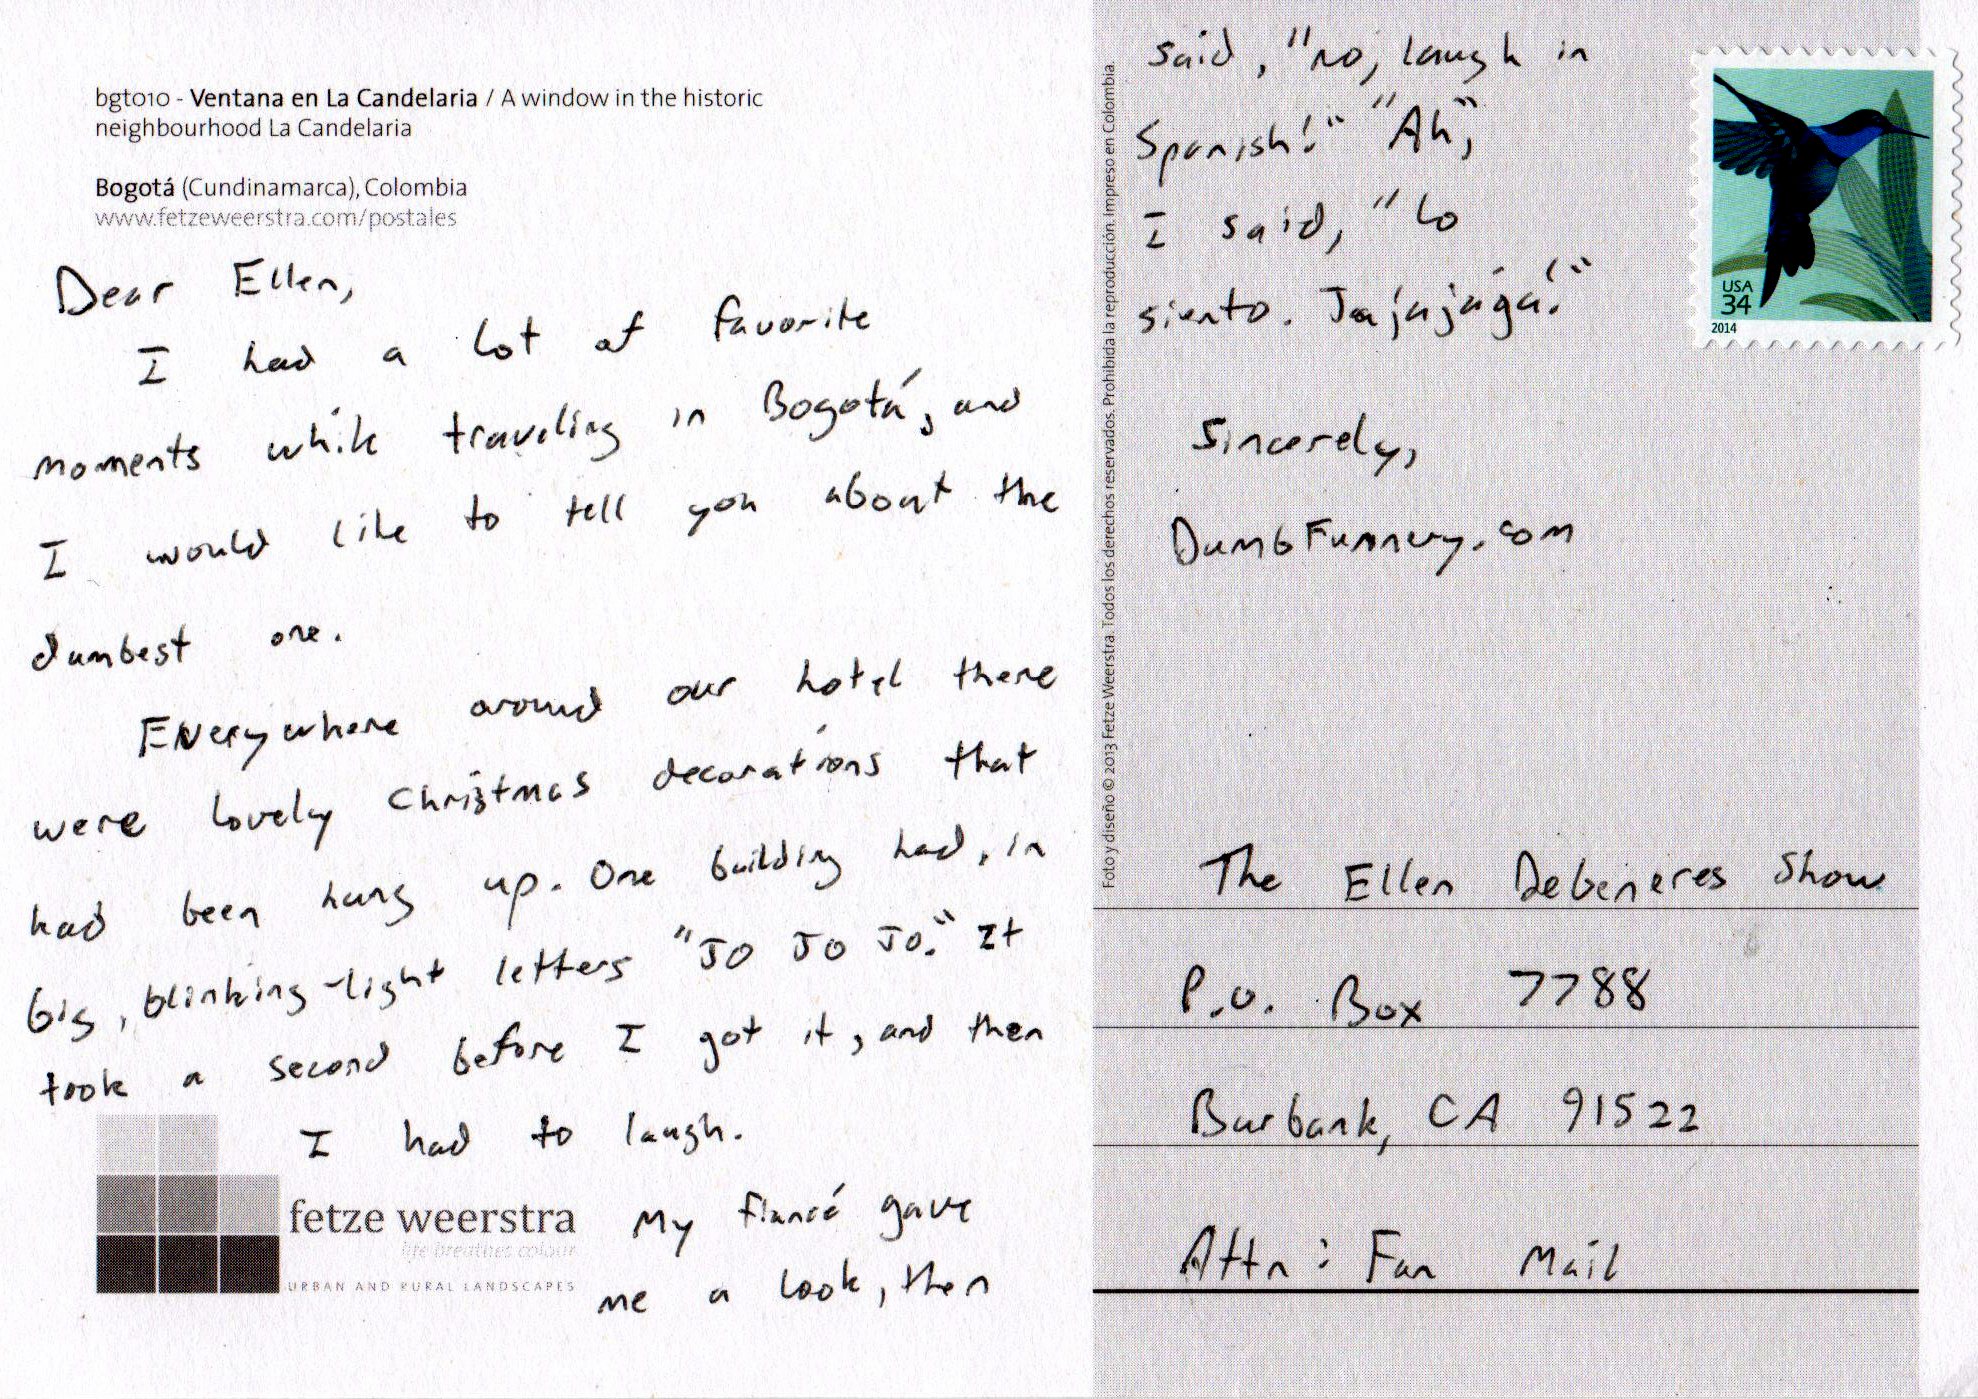 bgt010 - Ventana en La Candelaria / A window in the historic
neighbourhood La Candelaria
Bogotá (Cundinamarca), Colombia
www.fetzeweerstra.com/postales
Dear Ellen,
I had a lot of favorite
moments while traveling in Bogotá, and
I would like to tell you about the
dumbest one.
Everywhere around our hotel there
were lovely Christmas decorations that
had been hung up. One building had, in
big, blinking-light letters "JO JO JO." It
took a second before I got it, and then
I had to laugh.
My fiancé gave
me a look, then
fetze weerstra
life breathes colour
URBAN AND RURAL LANDSCAPES
Foto y diseño © 2013 Fetze Weerstra. Todos los derechos reservados. Prohibida la reproducción. Impreso en Colombia.
said, "no, laugh in
Spanish!" "Ah",
I said, "Lo
siento. Jajajajá!"
Sincerely,
DumbFunnery.com
USA
34
2014
The Ellen Degeneres Show
P.O. Box 7788
Burbank, CA 91522
Attn: Fan Mail